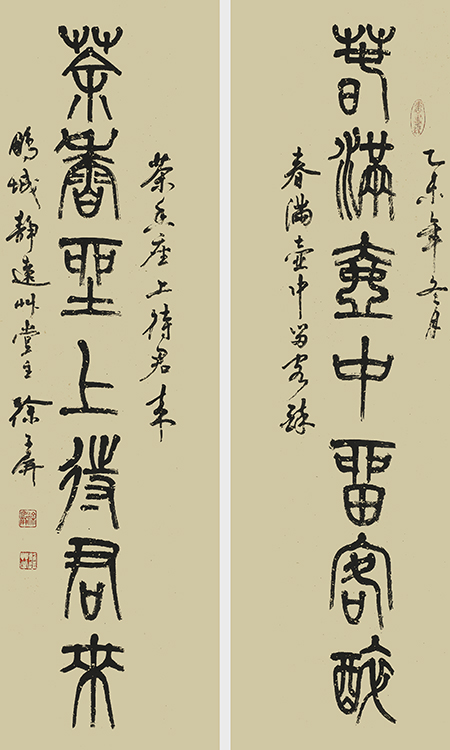 乙未年冬月
春滿壺中留客醉
春满壶中留客醉
茶香座上待君来
茶香座上待君來
鹏城静远艸堂主徐